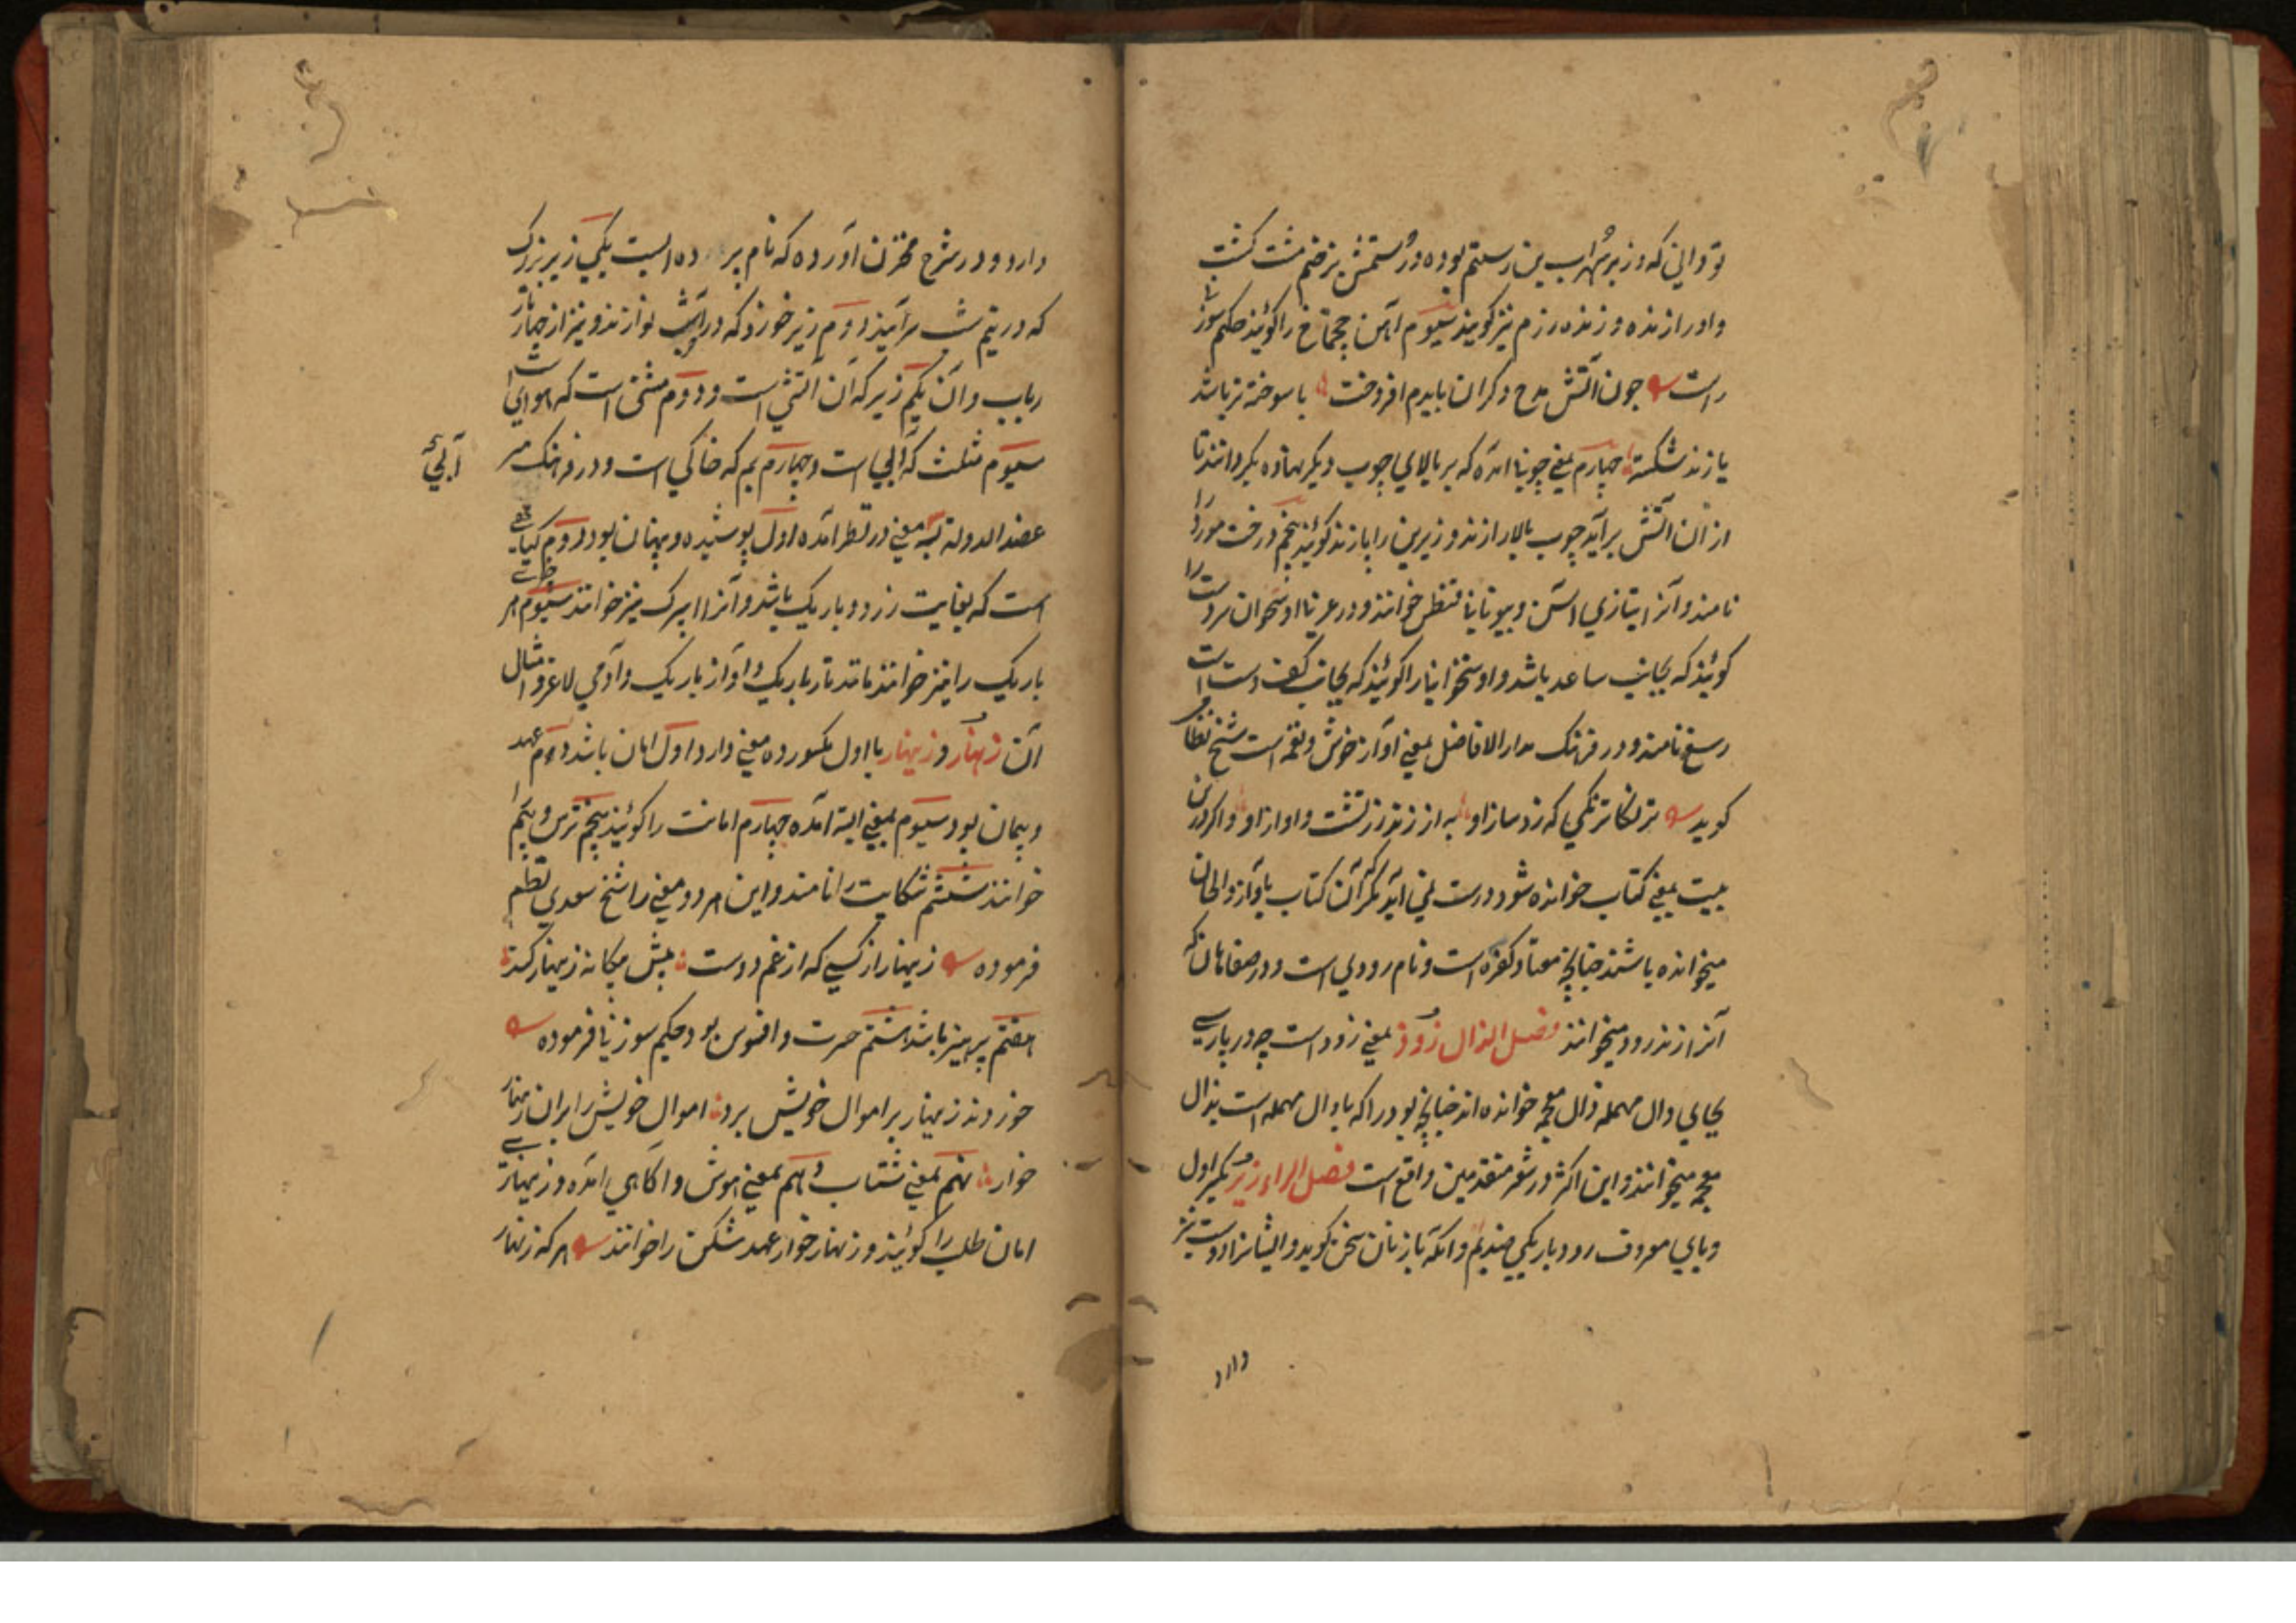 تو دانی که وزیر سهراب بن رستم بوده و رستمش بزخم مشت کشت
و اورا زنده و زنده رزم نیز کویند سیوم آهن چخماخ را کوئیند حکیم سوزنی
راست چون آتش مدح دکران بایدم افروخت یا سوخته تر باشد
یا زند شکسته چهارم بمعنی چوبها آمده که بر بالای چوب دیکر نهاده بکردانند تا
از آن آتش برآید چوب بالا را زند و زیرین را پازند کوئیند پنجم درخت مورد را
نامند و آنرا بتازی آس و بیونانی خوانند و در عربی استخوان سر دست را
کوئیند که بجانب ساعد باشد و استخوانی را کوئیند که بجانب کف دست است
رسغ نامند و در فرهنک مدار الافاضل بمعنی آواز خوش و نغمه است شیخ نظامی
کوید که زد ساز او به از زند زردشت و آواز او و اکر درین
بیت بمعنی کتاب خوانده شود درست نمی آید مکر آنکه آن کتاب بآواز و الحان
میخوانده باشند چنانچه معتاد کفره است و نام رودی است و در صفاهان که
آنرا زنده رود میخوانند فصل الذال زوذ بمعنی زود است چه در پارسی
بجای دال مهمله ذال معجمه خوانده اند چنانچه بود را که با دال مهمله است بذال
معجمه میخوانند و این اکثر در شعر متقدمین واقع است فصل الراء زیر بکسر اول
و یای معروف دو باریکی ضد بم و آنکه با زنان سخن کوید و ایشانرا دوست نیز
دارد
دارد و در شرح مخزن آورده که نام پرده ایست یکی زیر بزرک
که در نیم شب سرایند دوم زیر خورد که در آن شب نوازند و نیز از چهار تار
رباب و آن یکم زیر که آن آتشی است و دوم مثنی است که هوائی است
سیوم مثلث که آبی است و چهارم بم که خاکی است و در فرهنک میر
آبی
عضد الدوله بسه معنی در نظر آمده اول پوشیده و پنهان بود دوم کیاهی
است که بغایت زرد و باریک باشد و آنرا اسپرک نیز خوانند سیوم هر چیزی
باریک را نیز خوانند مانند تار باریک و آواز باریک و آدمی لاغر و امثال
آن زنهار و زینهار با اول مکسور ده معنی دارد اول امان باشد دوم عهد
و پیمان بود سیوم بمعنی البته آمده چهارم امانت را کوئیند پنجم ترس و بیم
خوانند ششم شکایت را نامند و این هر دو معنی را شیخ سعدی نظم
فرموده زینهار از کسی که از غم دوست پیش بیکانه زینهار کند
هفتم پرهیز باشد هشتم حسرت و افسوس بود حکیم سوزنی فرموده
خوردند زینهار بر اموال خویش برد اموال خویش را بران زینهار
خوار نهم بمعنی شتاب دهم بمعنی هوش و آکاهی آمده و زینهاری
امان طلب را کوئیند و زنهار خوار عهد شکن را خوانند هر که زنهار